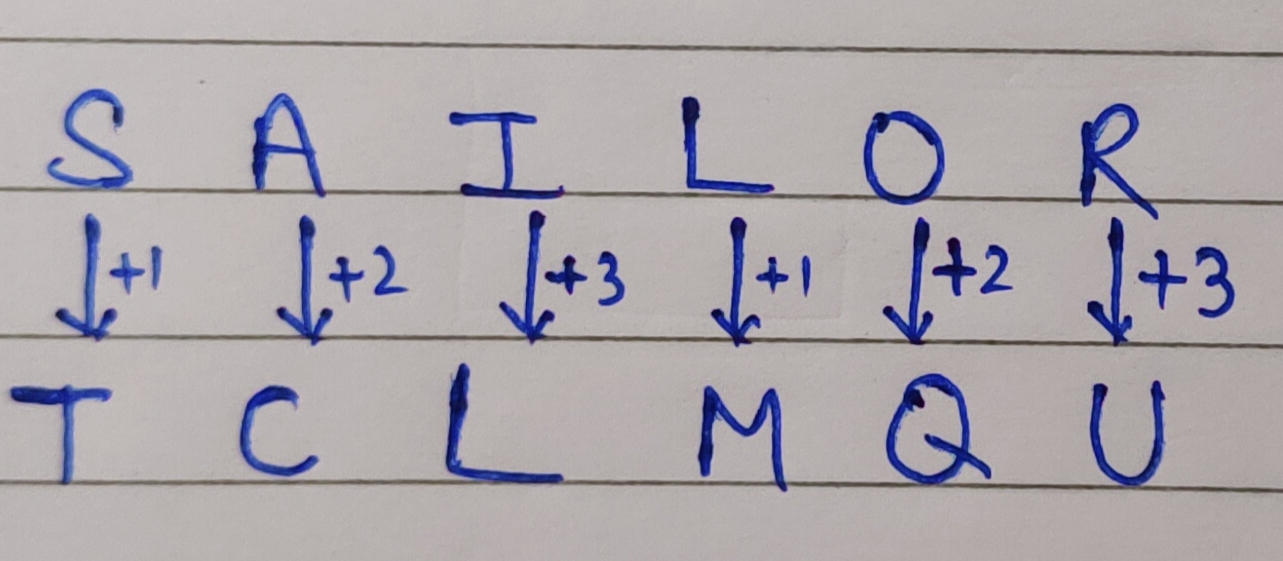 S A I L O R
↓+1 ↓+2 ↓+3 ↓+1 ↓+2 ↓+3
T C L M Q U